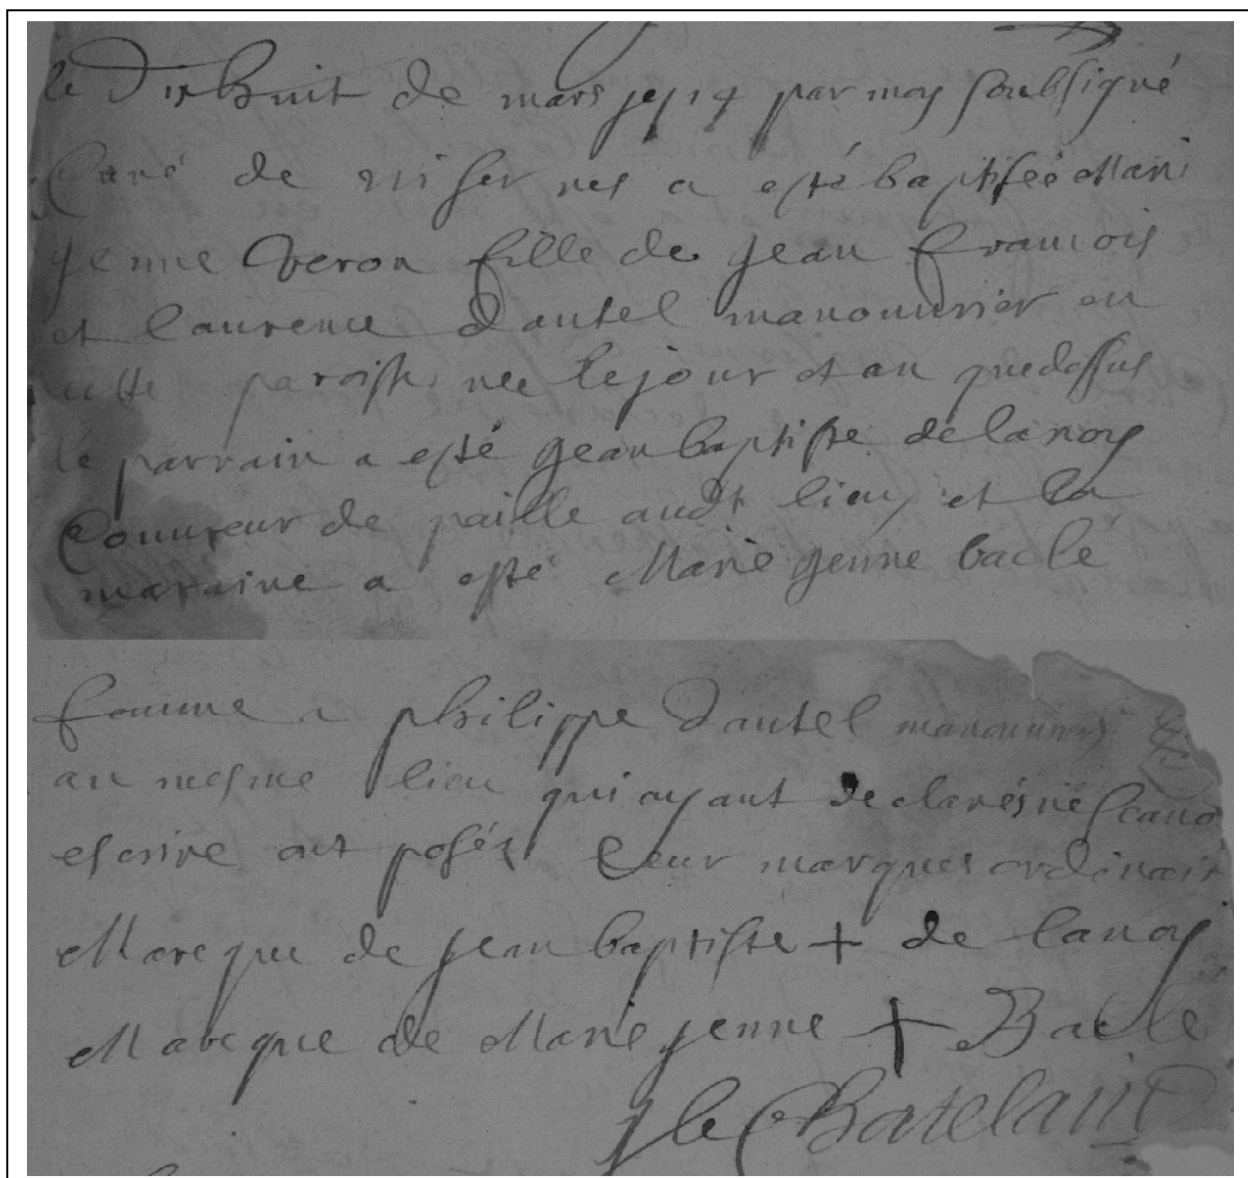 le Dix huit de mars 1714 par moy soubsigné
Curé de Wisernes a esté baptiséé Mari
Jenne Veron fille de jean francois
et laurence dautel manouvrier en
cette paroisse née le jour et an que dessus
le parrain a esté Jean baptiste delanoy
Couvreur de paille audt lieu et la
maraine a esté Marie Jenne bacle
femme a philippe Dautel manouvrier
au mesme lieu qui ayant declarés ne scavo
escrire ont posés leur marques ordinair
Marcque de jean baptiste + de lanoy
Marcque de Marie jenne + Bacle
J le Chatelain